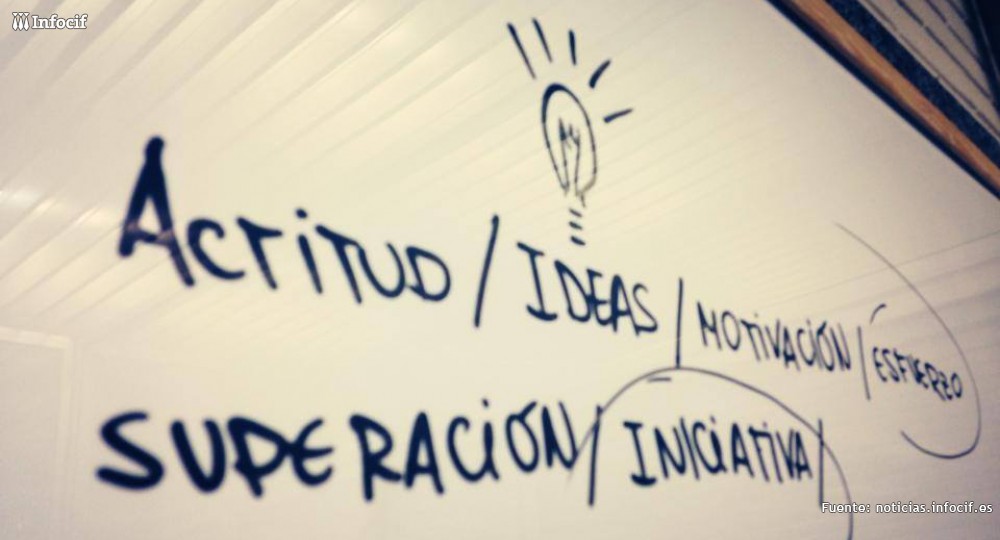 Infocif
ACTITUD / IDEAS / MOTIVACIÓN / ESFUERZO
SUPERACIÓN / INICIATIVA /
Fuente: noticias.infocif.es